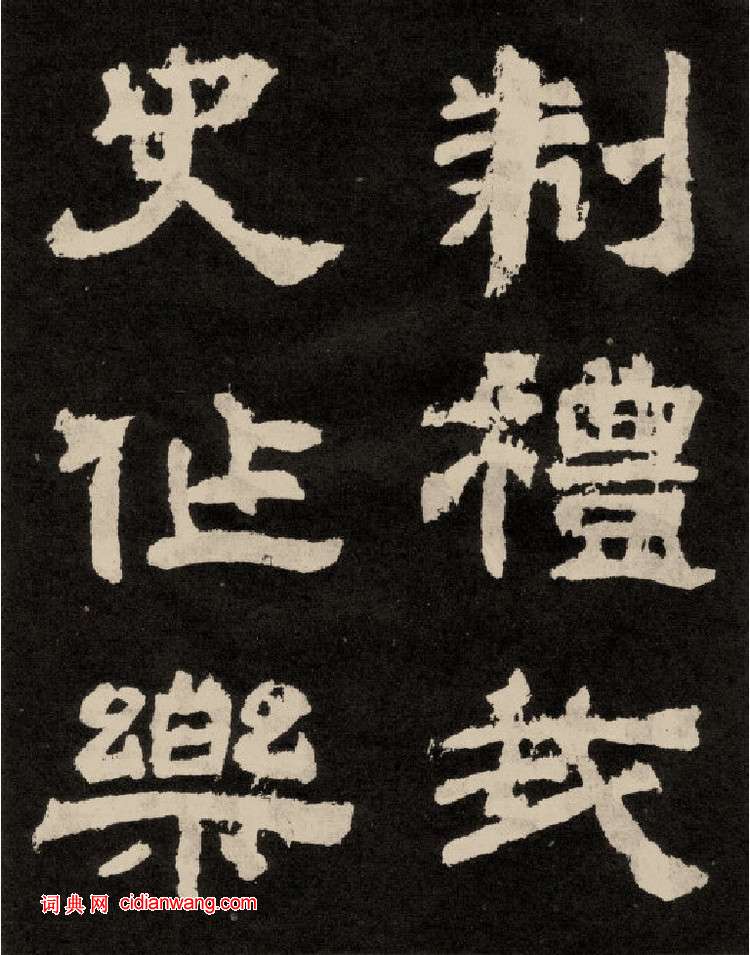 制禮我
史作樂
词典网 cidianwang.com